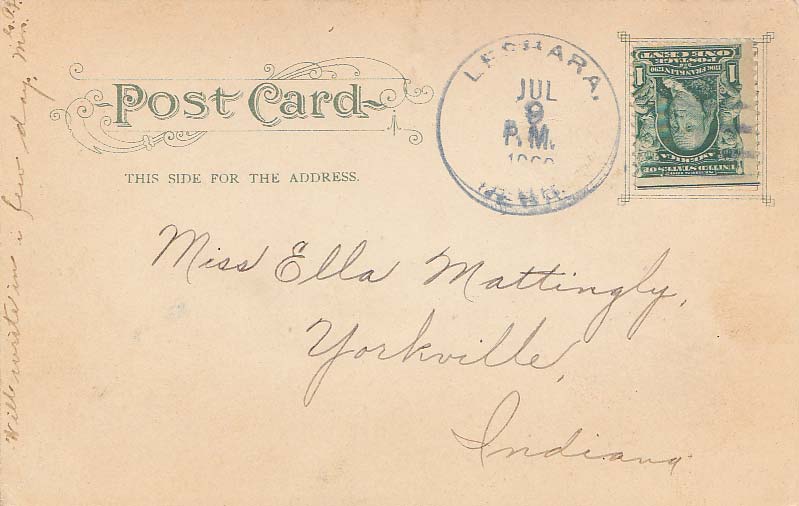 Post Card
THIS SIDE FOR THE ADDRESS.
LESHARA,
JUL
9
P.M.
NEBR.
1 ONE CENT 1
POSTAGE
THE FRANKLIN
UNITED STATES OF
AMERICA
Miss Ella Mattingly,
Yorkville,
Indiana
Will write in a few days.